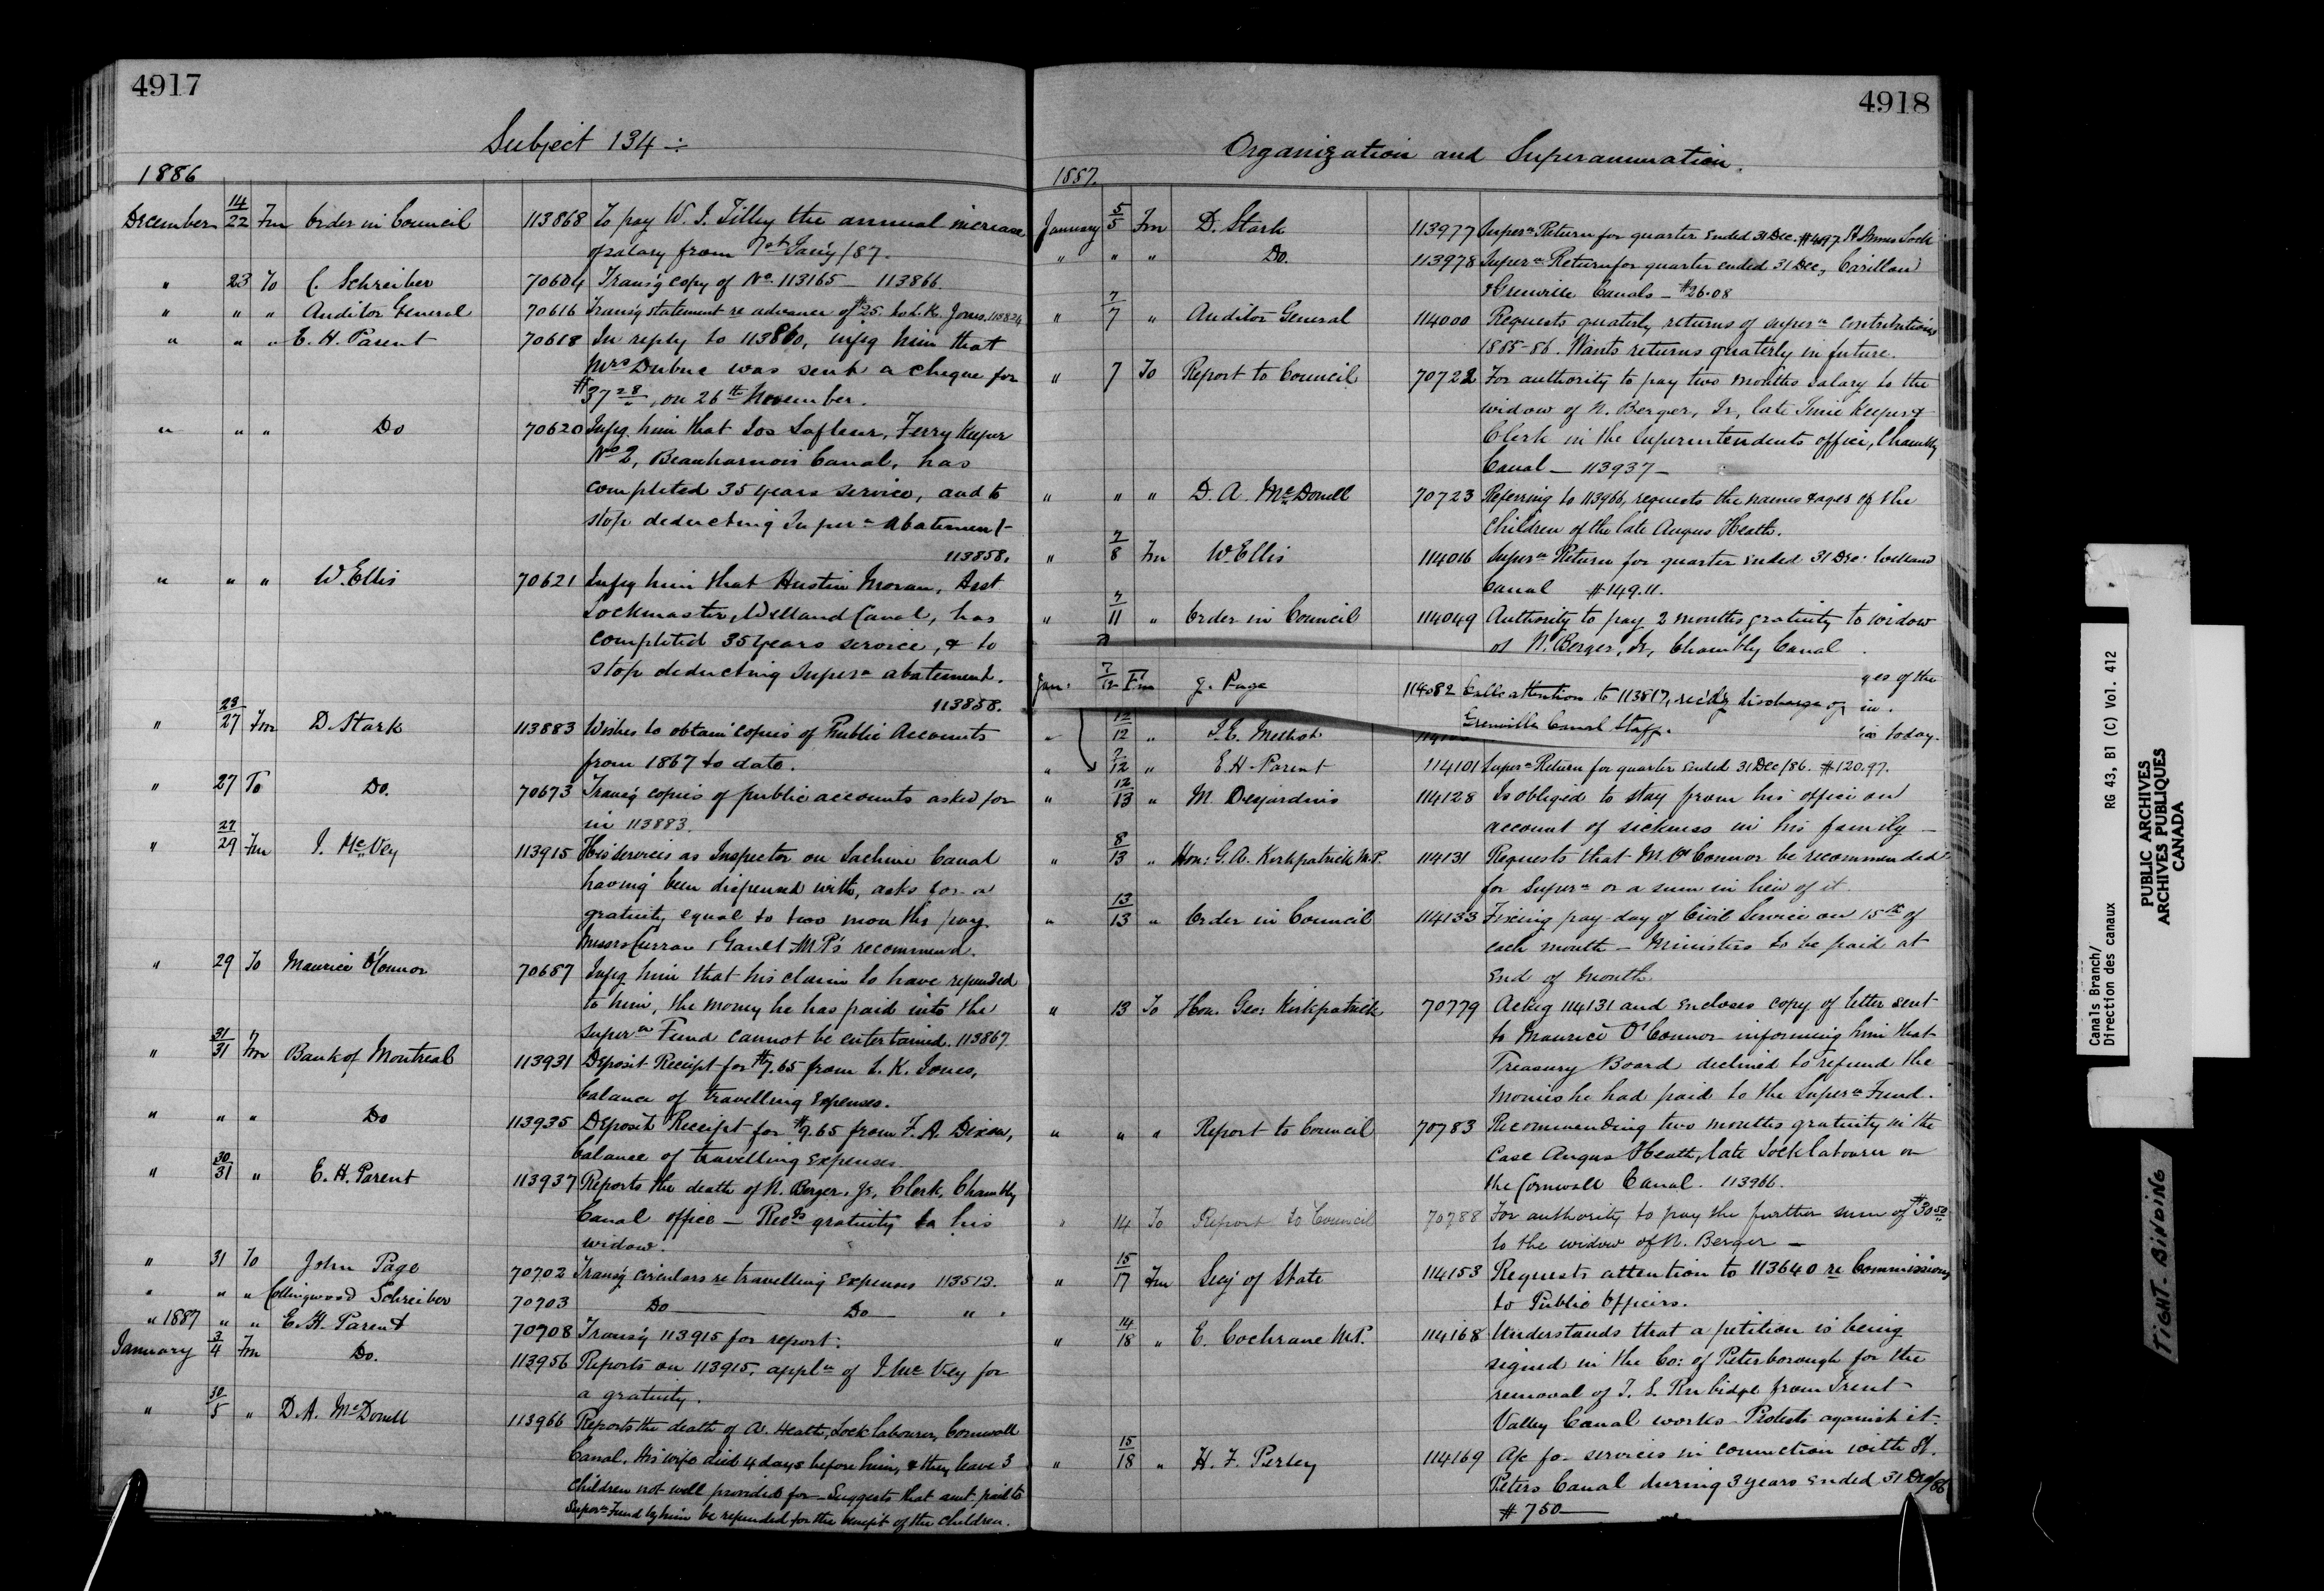 4917
Subject 134 ÷
1886
December 14/22 Fm Order in Council 113868 To pay W. I. Tilley the annual increase
of salary from 1st Jan'y /87.
" 23 To C. Schreiber 70604 Trans'g copy of No 113165 — 113866.
" " " Auditor General 70616 Trans'g statement re advance of $25. to L. K. Jones. 113824
" " " E. H. Parent 70618 In reply to 113860, infg him that
Mrs Dubuc was sent a cheque for
$37 28/", on 26th November.
" " " Do 70620 Infg. him that Jos Lafleur, Ferry Keeper
No 2, Beauharnois Canal, has
completed 35 years service, and to
stop deducting Supern abatement
113858.
" " " W. Ellis 70621 Infg him that Austin Moran, Asst
Lockmaster, Welland Canal, has
completed 35 years service, & to
stop deducting Supern abatement.
113858.
" 23/27 Fm D. Stark 113883 Wishes to obtain copies of Public Accounts
from 1867 to date.
" 27 To Do. 70673 Trans'g copies of public accounts asked for
in 113883.
" 27/29 Fm J. McVey 113915 His services as Inspector on Lachine Canal
having been dispensed with, asks for a
gratuity equal to two months pay.
Messrs Curran & Gault M.P's recommend.
" 29 To Maurice O'Connor 70687 Infg him that his claim to have refunded
to him, the money he has paid into the
Supern Fund cannot be entertained. 113867
" 31/31 Fm Bank of Montreal 113931 Deposit Receipt for $7.65 from L. K. Jones,
balance of travelling expenses.
" " " Do 113935 Deposit Receipt for $9.65 from F. A. Dixon,
balance of travelling expenses.
" 30/31 " E. H. Parent 113937 Reports the death of N. Berger, Jr, Clerk, Chambly
Canal office — Recds gratuity to his
widow.
" 31 To John Page 70702 Trans'g circulars re travelling expenses 113513.
" " " Collingwood Schreiber 70703 Do — Do — " .
" 1887 " " E. H. Parent 70708 Trans'g 113915 for report.
January 3/4 Fm Do. 113956 Reports on 113915, appln of J. McVey for
a gratuity.
" 30/5 " D. A. McDonell 113966 Reports the death of A. Heath, Lock labourer, Cornwall
Canal. His wife died 4 days before him, & they leave 3
children not well provided for — Suggests that amt paid to
Supern Fund by him be refunded for the benefit of the children.
4918
Organization and Superannuation.
1887.
January 5/5 Fm D. Stark 113977 Supern Return for quarter ended 31 Dec. $4.97 St Annes Lock
" " " Do. 113978 Supern Return for quarter ended 31 Dec, Carillon
& Grenville Canals — $26.08
" 7/7 " Auditor General 114000 Requests quaterly returns of supern contributions
1885-86. Wants returns quaterly in future.
" 7 To Report to Council 70722 For authority to pay two months salary to the
widow of N. Berger, Jr, late Time Keeper &
Clerk in the Superintendents office, Chambly
Canal — 113937 —
" " " D. A. McDonell 70723 Referring to 113966, requests the names & ages of the
Children of the late Angus Heath.
" 7/8 Fm W. Ellis 114016 Supern Return for quarter ended 31 Dec: Welland
Canal $149.11.
" 7/11 " Order in Council 114049 Authority to pay 2 months gratuity to widow
of N. Berger, Jr, Chambly Canal
Jan. 7/12 Fm J. Page 114082 Calls attention to 113817, discharge of
Grenville Canal Staff.
ges of the
in.
today.
" 12/12 "
" 7/12 " E. H. Parent 114101 Supern Return for quarter ended 31 Dec/86. $120.97.
" 12/13 " M. Desjardins 114128 Is obliged to stay from his office on
account of sickness in his family —
" 8/13 " Hon: G. A. Kirkpatrick M.P. 114131 Requests that M. O'Connor be recommended
for Supern or a sum in lieu of it.
" 13/13 " Order in Council 114133 Fixing pay-day of Civil Service on 15th of
each month — Ministers to be paid at
end of month
" 13 To Hon. Geo: Kirkpatrick 70779 Ackg 114131 and encloses copy of letter sent
to Maurice O'Connor informing him that
Treasury Board declined to refund the
monies he had paid to the Supern Fund.
" " " Report to Council 70783 Recommending two months gratuity in the
case Angus Heath, late Lock labourer on
the Cornwall Canal. 113966.
" 14 To Report to Council 70788 For authority to pay the further sum of $30 50/"
to the widow of N. Berger —
" 15/17 Fm Secy of State 114153 Requests attention to 113640 re Commissions
to Public Officers.
" 14/18 " E. Cochrane M.P. 114168 Understands that a petition is being
signed in the Co: of Peterborough for the
removal of T. S. Rubidge from Trent
Valley Canal works — Protests against it.
" 15/18 " H. F. Perley 114169 A/c for services in connection with St.
Peters Canal during 3 years ended 31 Dec/86
$750 —
Canals Branch/
Direction des canaux RG 43, B1 (C) Vol. 412
PUBLIC ARCHIVES
ARCHIVES PUBLIQUES
CANADA
TIGHT BINDING